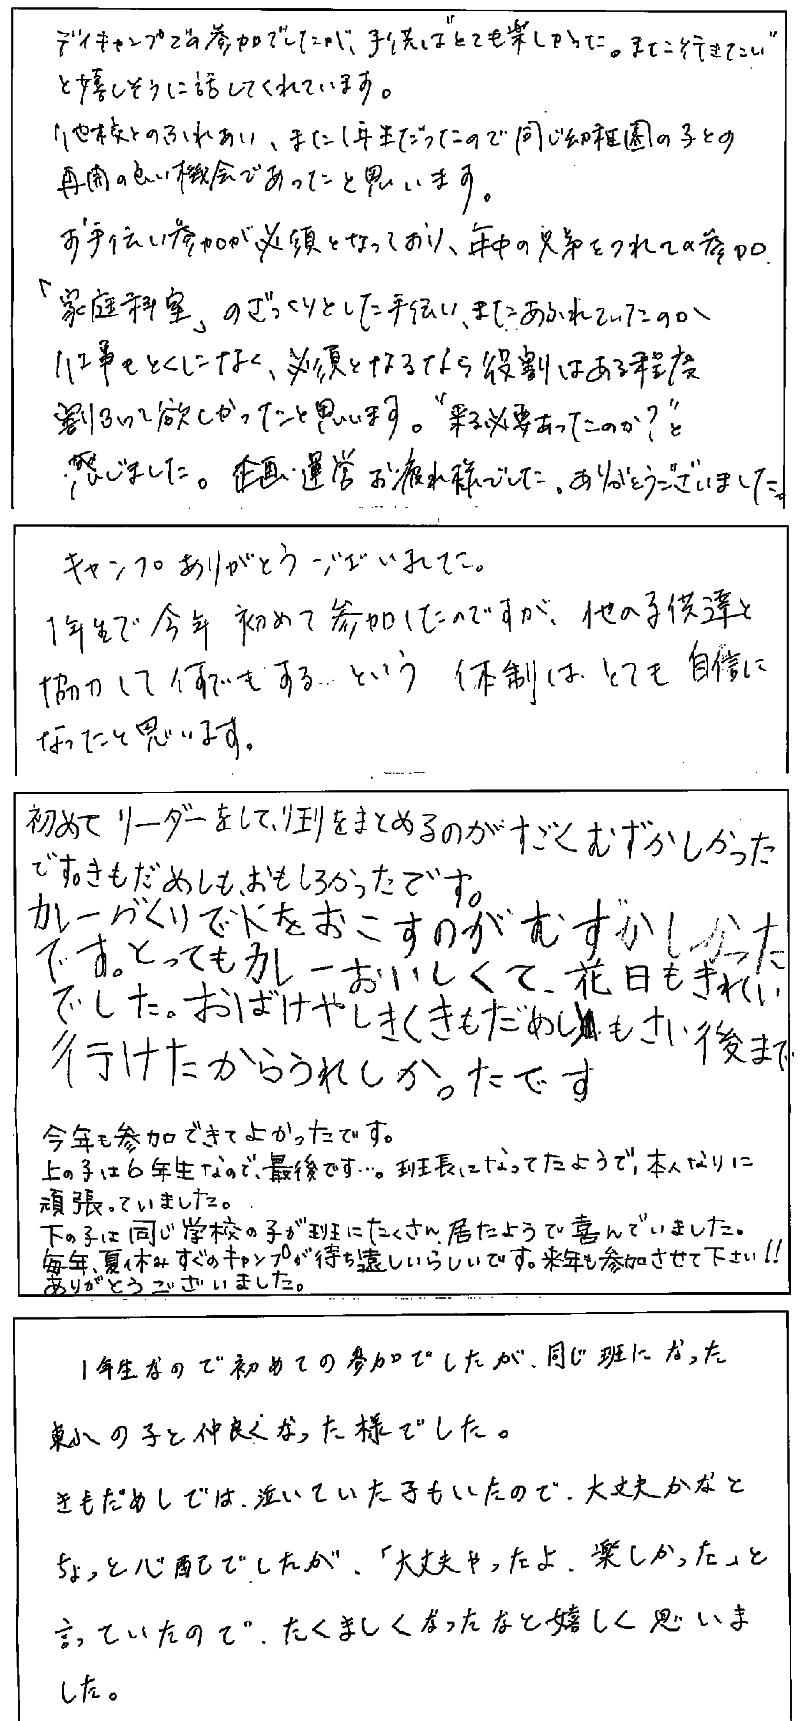 デイキャンプでの参加でしたが、子供は"とても楽しかった。また行きたい"
と嬉しそうに話してくれています。
他校とのふれあい、また1年生だったので同じ幼稚園の子との
再開の良い機会であったと思います。
お手伝い参加が必須となっており、年中の兄弟をつれての参加。
「家庭科室」のざっくりとした手伝い、またあふれていたのか
仕事もとくになく、必須となるなら役割はある程度
割ふって欲しかったと思います。"来る必要あったのか?"と
感じました。企画・運営お疲れ様でした。ありがとうございました。
キャンプありがとうございました。
1年生で今年初めて参加したのですが、他の子供達と
協力して何でもする…という体制は、とても自信に
なったと思います。
初めてリーダーをして、班をまとめるのがすごくむずかしかった
です。きもだめしも、おもしろかったです。
カレーづくりで火をおこすのがむずかしかった
です。とってもカレーおいしくて、花日もきれい
でした。おばけやしきくきもだめしもさい後まで
行けたからうれしかったです
今年も参加できてよかったです。
上の子は6年生なので、最後です…。班長になってたようで、本人なりに
頑張っていました。
下の子は同じ学校の子が班にたくさん居たようで喜んでいました。
毎年、夏休みすぐのキャンプが待ち遠しいらしいです。来年も参加させて下さい!!
ありがとうございました。
1年生なので初めての参加でしたが、同じ班になった
東小の子と仲良くなった様でした。
きもだめしでは、泣いていた子もいたので、大丈夫かなと
ちょっと心配でしたが、「大丈夫やったよ、楽しかった」と
言っていたので、たくましくなったなと嬉しく思いま
した。